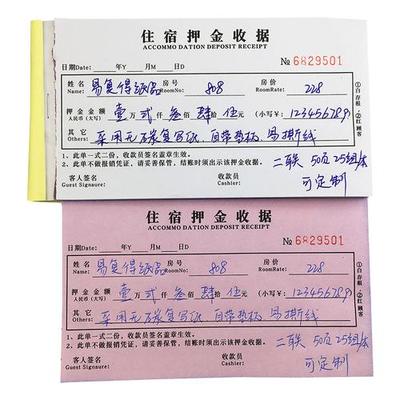 住宿押金收据
ACCOMMO DATION DEPOSIT RECEIPT
№ 6829501
日期Date: 年Y 月M 日D
姓名 Name: 易复得誠品 房号 Room: 808 房价 RoomRate: 228
押金金额 人民币(大写) 壹万贰仟叁佰肆拾伍元 (小写¥:) 123456789
其它 Others: 采用无碳复写纸,自带垫板 易撕线
1、此单一式二份,收款员签名盖章生效。
2、此单不做报销凭证,请妥善保管,结账时须出示该押金收据。
二联 50页25组/本
客人签名 Guest Signaure: 收款员 Cashier:
可定制
①白存根 ②红顾客
住宿押金收据
ACCOMMO DATION DEPOSIT RECEIPT
№ 6829501
日期Date: 年Y 月M 日D
姓名 Name: 易复得誠品 房号 Room: 808 房价 RoomRate: 228
押金金额 人民币(大写) 壹万贰仟叁佰肆拾伍元 (小写¥:) 123456789
其它 Others: 采用无碳复写纸,自带垫板 易撕线
1、此单一式二份,收款员签名盖章生效。
2、此单不做报销凭证,请妥善保管,结账时须出示该押金收据。
二联 50页25组/本
客人签名 Guest Signaure: 收款员 Cashier:
可定制
①白存根 ②红顾客